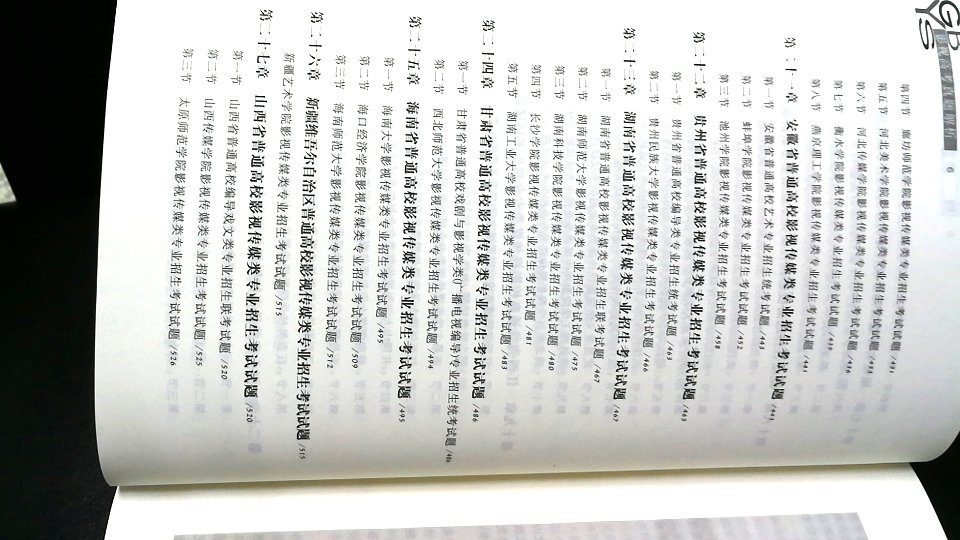 影视高考真题解析
6
第四节 廊坊师范学院影视传媒类专业招生考试试题 /431
第五节 河北美术学院影视传媒类专业招生考试试题 /433
第六节 河北传媒学院影视传媒类专业招生考试试题 /436
第七节 衡水学院影视传媒类专业招生考试试题 /439
第八节 燕京理工学院影视传媒类专业招生考试试题 /441
第二十一章 安徽省普通高校影视传媒类专业招生考试试题 /443
第一节 安徽省普通高校艺术专业招生统考试题 /443
第二节 蚌埠学院影视传媒类专业招生考试试题 /452
第三节 池州学院影视传媒类专业招生考试试题 /458
第二十二章 贵州省普通高校影视传媒类专业招生考试试题 /463
第一节 贵州省普通高校编导类专业招生统考试题 /463
第二节 贵州民族大学影视传媒类专业招生考试试题 /466
第二十三章 湖南省普通高校影视传媒类专业招生考试试题 /467
第一节 湖南省普通高校影视传媒类专业招生联考试题 /467
第二节 湖南师范大学影视传媒类专业招生考试试题 /475
第三节 湖南科技学院影视传媒类专业招生考试试题 /480
第四节 长沙学院影视传媒类专业招生考试试题 /481
第五节 湖南工业大学影视传媒类专业招生考试试题 /483
第二十四章 甘肃省普通高校影视传媒类专业招生考试试题 /486
第一节 甘肃省普通高校戏剧与影视学类(广播电视编导)专业招生统考试题 /486
第二节 西北师范大学影视传媒类专业招生考试试题 /494
第二十五章 海南省普通高校影视传媒类专业招生考试试题 /495
第一节 海南大学影视传媒类专业招生考试试题 /495
第二节 海口经济学院影视传媒类专业招生考试试题 /509
第三节 海南师范大学影视传媒类专业招生考试试题 /512
第二十六章 新疆维吾尔自治区普通高校影视传媒类专业招生考试试题 /515
新疆艺术学院影视传媒类专业招生考试试题 /515
第二十七章 山西省普通高校影视传媒类专业招生考试试题 /520
第一节 山西省普通高校编导戏文类专业招生联考试题 /520
第二节 山西传媒学院影视传媒类专业招生考试试题 /525
第三节 太原师范学院影视传媒类专业招生考试试题 /526